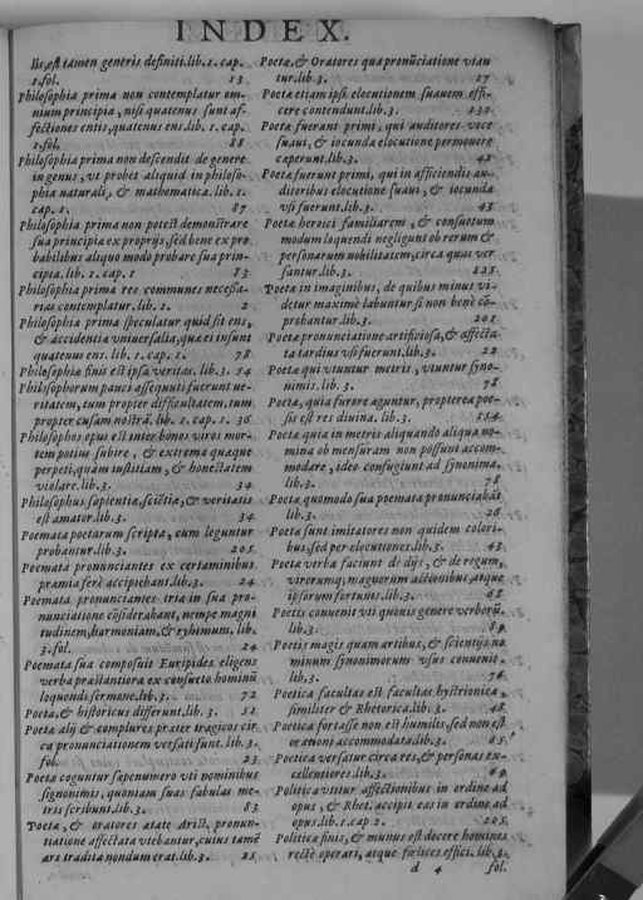 INDEX.
lis,est tamen generis definiti.lib.1.cap.
1.fol. 13
Philosophia prima non contemplatur om-
nium principia, nisi quatenus sunt af-
fectiones entis,quatenus ens.lib. 1. cap.
1.fol. 88
Philosophia prima non descendit de genere
in genus, vt probet aliquid in philoso-
phia naturali, & mathematica. lib. 1.
cap. 1. 87
Philosophia prima non potest demonstrare
sua principia ex proprijs,sed bene ex pro
babilibus aliquo modo probare sua prin-
cipia. lib. 1. cap. 1 83
Philosophia prima res communes necessa-
rias contemplatur. lib. 1. 2
Philosophia prima speculatur quid sit ens,
& accidentia vniuersalia,quæ ei insunt
quatenus ens. lib. 1. cap. 1. 78
Philosophiæ finis est ipsa veritas. lib. 3. 54
Philosophorum pauci assequuti fuerunt ue-
ritatem, tum propter difficultatem, tum
propter cusam nostrã. lib. 1. cap. 1. 36
Philosophos opus est inter bonos viros mor-
tem potius subire, & extrema quæque
perpeti,quàm iustitiam, & honestatem
violare.lib.3. 34
Philosophus sapientiæ,sciẽtiæ,& veritatis
est amator.lib.3. 34
Poemata poetarum scripta, cum leguntur
probantur.lib.3. 205
Poemata pronunciantes ex certaminibus
præmia ferè accipiebant.lib.3. 24
Poemata pronunciantes tria in sua pro-
nunciatione cõsiderabant, nempe magni
tudinem,harmoniam,& ryhimum. lib.
3.fol. 24
Poemata sua composuit Euripides eligens
verba præstantiora ex consueto hominũ
loquendi sermone.lib.3. 72
Poeta,& historicus differunt.lib. 3. 51
Poetæ alij & complures præter tragicos cir
ca pronunciationem versati sunt. lib.3.
fol. 23
Poetæ coguntur sæpenumero vti nominibus
signonimis, quoniam suas fabulas me-
tris scribunt.lib.3. 83
Poetæ, & oratores ætate Arist. pronun-
tiatione affectata vtebantur,cuius tamẽ
ars tradita nondum erat.lib.3. 25
Poetæ,& Oratores qua pronũciatione vtan
tur.lib.3. 27
Poetæ etiam ipsi elocutionem suauem effi-
cere contendunt.lib.3. 230
Poetæ fuerunt primi, qui auditores voce
suaui, & iocunda elocutione permouere
cæperunt.lib.3. 42
Poetæ fuerunt primi, qui in afficiendis au-
ditoribus elocutione suaui, & iocunda
vsi fuerunt.lib.3. 43
Poetæ heroici familiarem, & consuetum
modum loquendi negligunt ob rerum &
personarum nobilitatem,circa quas ver
santur.lib.3. 225
Poetæ in imaginibus, de quibus minus vi-
detur maximè labuntur si non benè cõ-
probantur.lib.3. 201
Poetæ pronunciatione artificiosa,& affecta-
ta tardius vsi fuerunt.lib.3. 22
Poetæ qui vtuntur metris, vtuntur syno-
nimis. lib. 3. 78
Poetæ, quia furore aguntur, propterea poe-
sis est res diuina. lib.3. 154
Poetæ quia in metris aliquando aliqua no-
mina ob mensuram non possunt accom-
modare, ideo confugiunt ad synonima.
lib.3. 78
Poetæ quomodo sua poemata pronunciabãt
lib.3. 26
Poetæ sunt imitatores non quidem colori-
bus,sed per elocutiones.lib.3. 43
Poetæ verba faciunt de dijs, & de regum,
virorumq; magnorum actionibus,atque
ipsorum fortunis.lib.3. 68
Poetis conuenit vti quouis genere verborũ.
lib.3. 89
Poetis magis quam artibus, & scientijs no
minum synonimorum vsus conuenit.
lib.3. 76
Poetica facultas est facultas hystrionica,
similiter & Rhetorica.lib.3. 48
Poetica fortasse non est humilis,sed non est
orationi accommodata.lib.3. 65
Poetica versatur circa res,& personas ex-
cellentiores.lib.3. 69
Politica vtitur affectionibus in ordine ad
opus, & Rhet. accipit eas in ordine ad
opus.lib.1.cap 2. 205
Politicæ finis,& munus est docere homines
rectè operari, atque fœlices effici. lib.3.
d 4 fol.